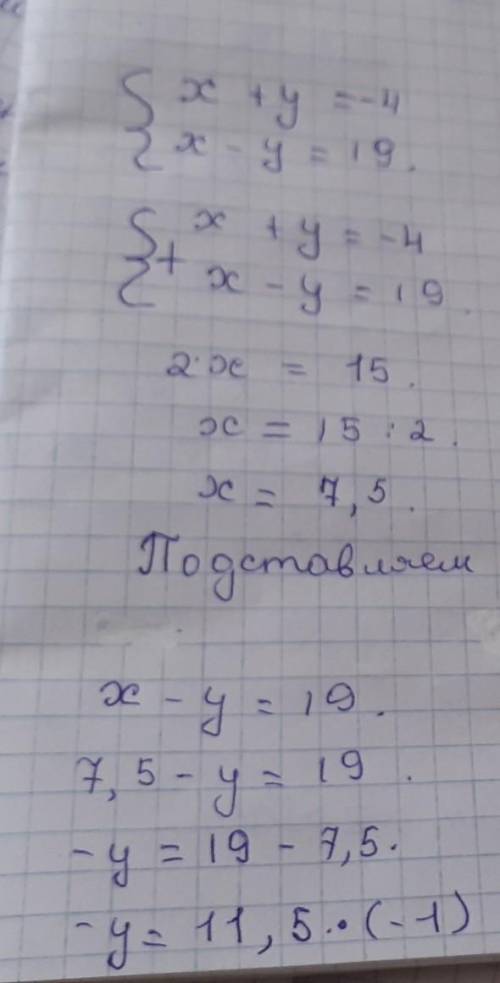 x + y = -4
x - y = 19.
x + y = -4
+
x - y = 19.
2·x = 15.
x = 15 : 2.
x = 7,5.
Подставляем
x - y = 19.
7,5 - y = 19.
-y = 19 - 7,5.
-y = 11,5·(-1)